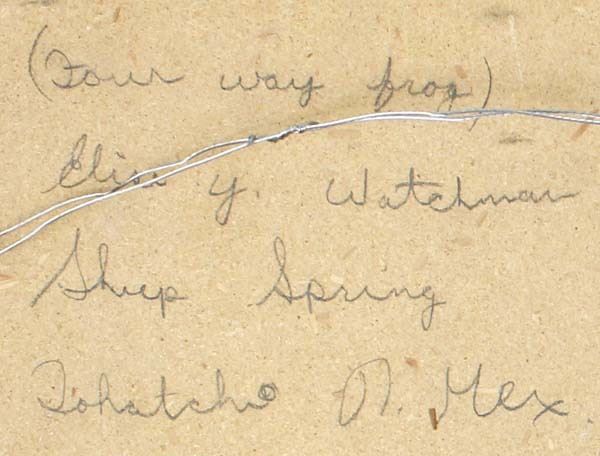 (Four way frog)
Elisa Y. Watchman
Sheep Spring
Tohatchi N. Mex.